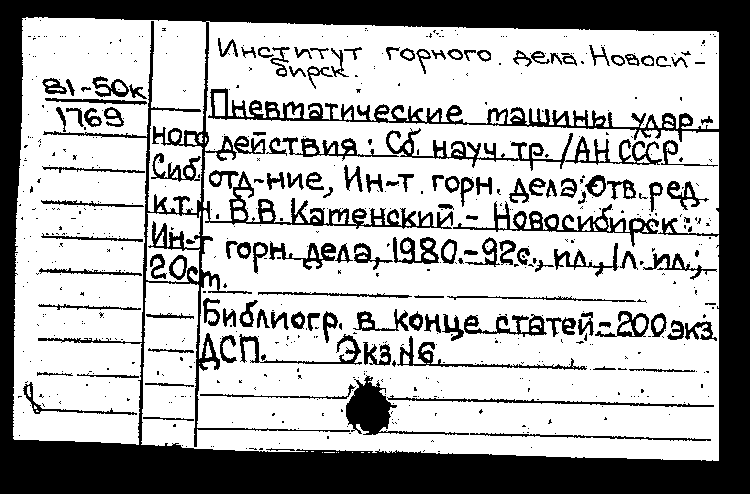 Институт горного дела. Новоси-
бирск.
81-50к
1769
Пневматические машины удар.-
ного действия: Сб. науч. тр. /АН СССР.
Сиб. отд-ние, Ин-т горн. дела; Отв. ред
к.т.н. В.В. Катенский. - Новосибирск:
Ин-т горн. дела, 1980.-92с., ил., 1л. ил.;
20ст.
Библиогр. в конце статей.-200экз.
ДСП. Экз.№6.